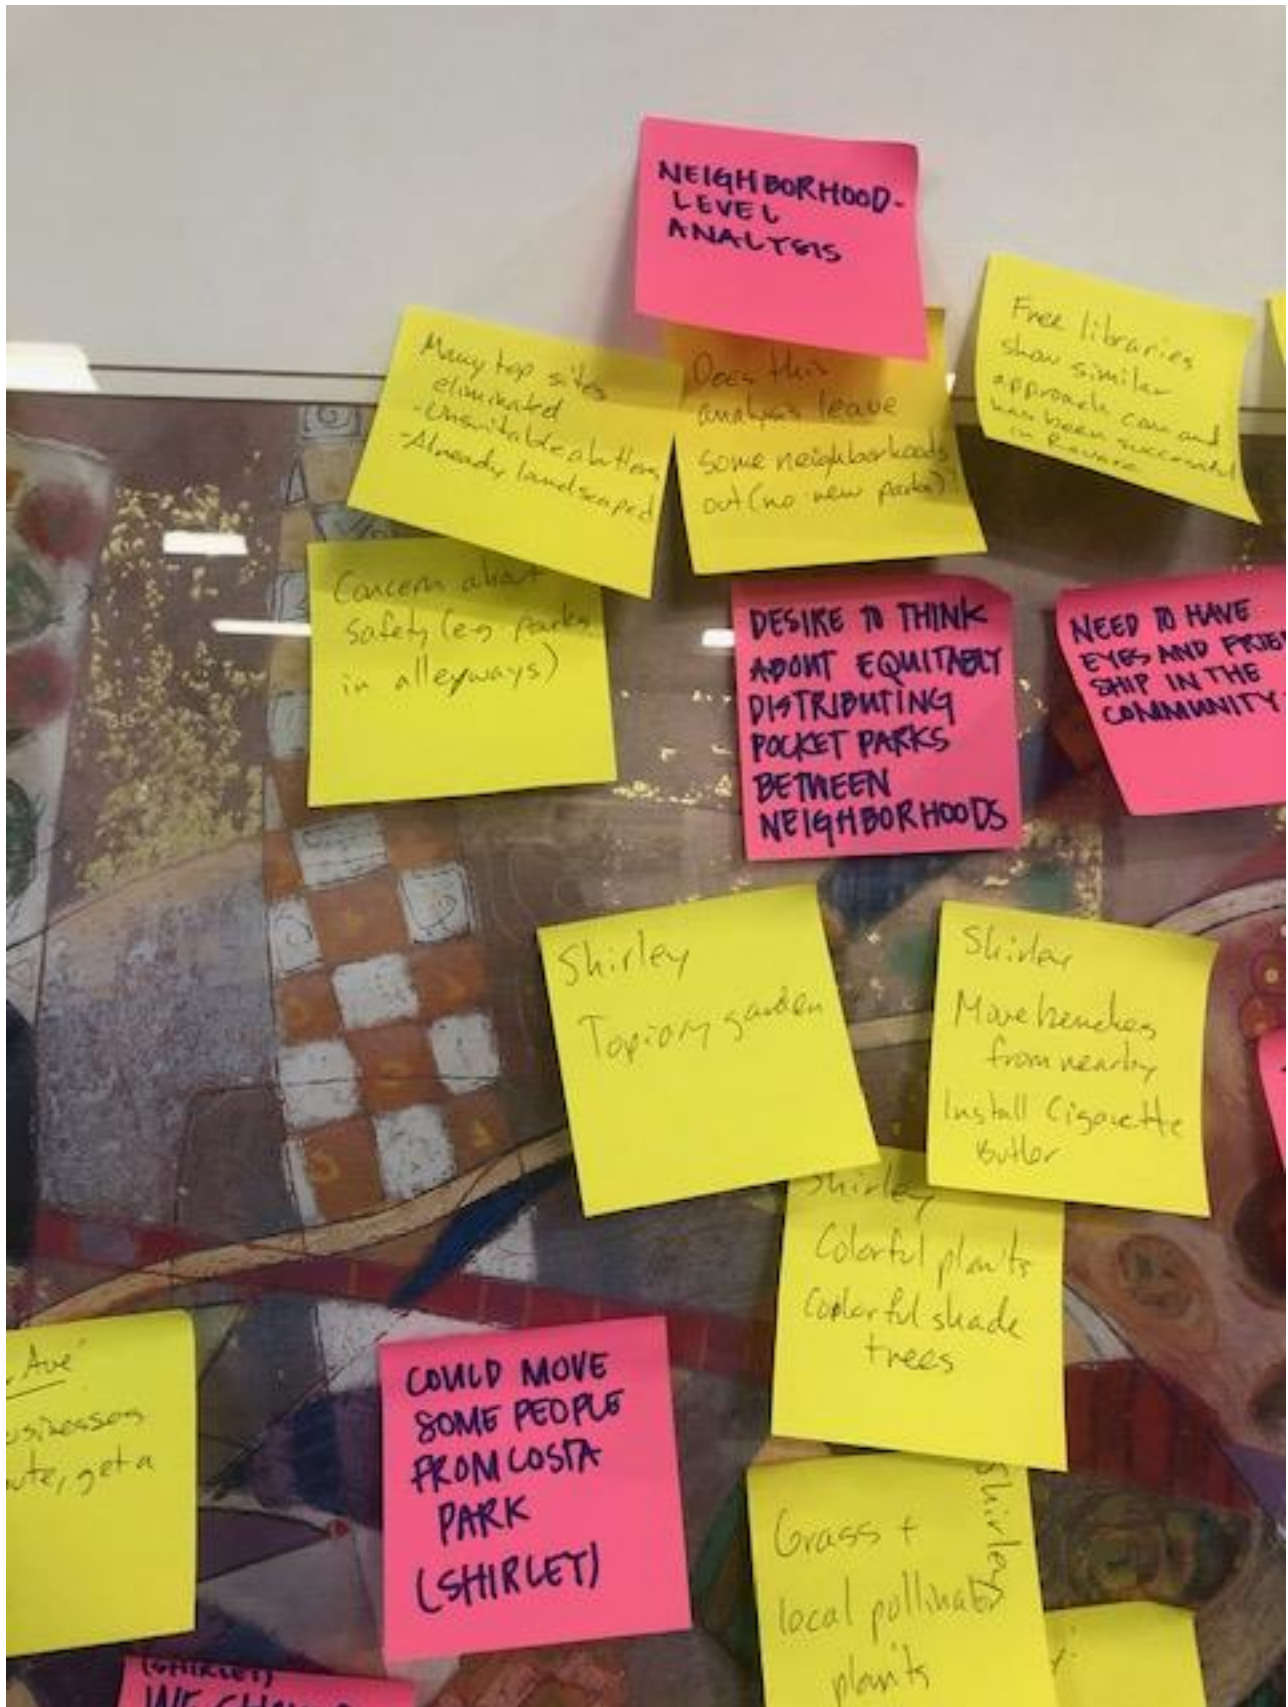 NEIGHBORHOOD-
LEVEL
ANALYSIS
Many top sites
eliminated
-Unsuitable abutters
-Already landscaped
Does this
analysis leave
some neighborhoods
out (no new parks)?
Free libraries
show similar
approach can and
has been successful
in Revere
Concern about
safety (eg parks
in alleyways)
DESIRE TO THINK
ABOUT EQUITABLY
DISTRIBUTING
POCKET PARKS
BETWEEN
NEIGHBORHOODS
NEED TO HAVE
EYES AND FRIE
SHIP IN THE
COMMUNITY
Shirley
Topiary garden
Shirley
Move benches
from nearby
Install Cigarette
Butler
Shirley
Colorful plants
Colorful shade
trees
Ave
usinesses
ute, get a
COULD MOVE
SOME PEOPLE
FROM COSTA
PARK
(SHIRLEY)
Shirley
Grass +
local pollinator
plants
(SHIRLEY)